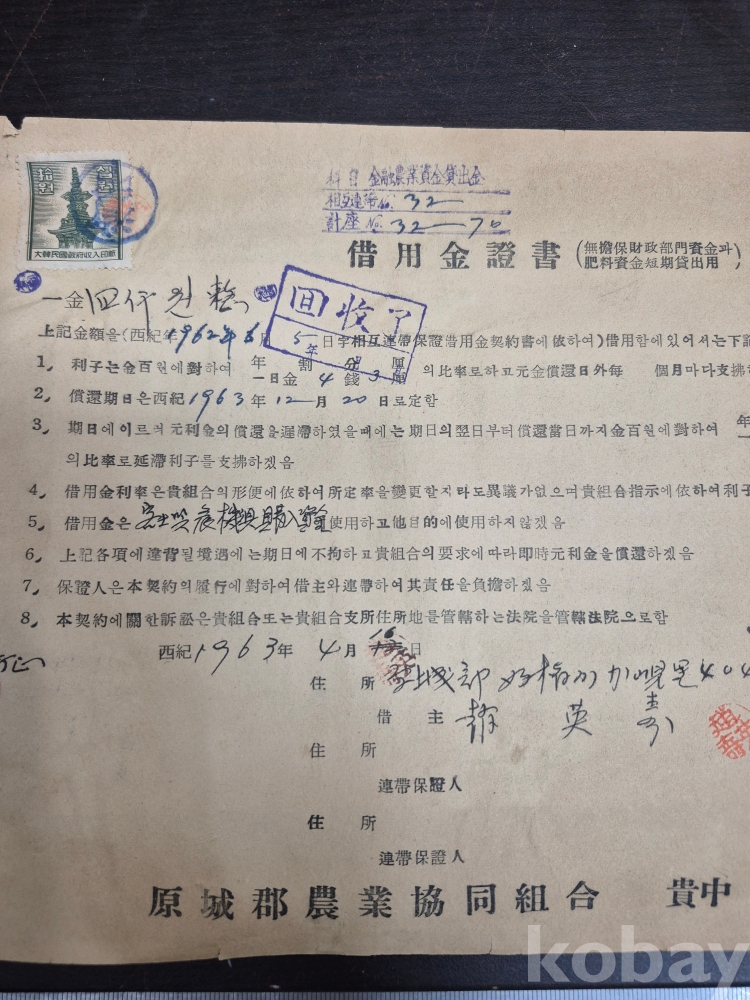 拾원 십원
大韓民國政府收入印紙
科目 金融農業資金貸出金
相互連帶No. 32
計座 No. 32-70
借用金證書 (無擔保財政部門資金과 肥料資金短期貸出用)
一金四仟원整
回收了
上記金額을(西紀年1962年6月5字相互連帶保證借用金契約書에依하여)借用함에있어서는下記
1, 利子는金百원에對하여 年 割 分 厘
一日金 4 錢 3 厘 의比率로하고元金償還日外每 個月마다支拂하
2, 償還期日은西紀1963年12月20日로定함
3, 期日에이르러元利金의償還을遲滯하였을때에는期日의翌日부터償還當日까지金百원에對하여 年
의比率로延滯利子를支拂하겠음
4, 借用金利率은貴組合의形便에依하여所定率을變更할지라도異議가없으며貴組合指示에依하여利子
5, 借用金은 農機具購入資金使用하고他目的에使用하지않겠음
6, 上記各項에違背될境遇에는期日에不拘하고貴組合의要求에따라即時元利金을償還하겠음
7, 保證人은本契約의履行에對하여借主와連帶하여其責任을負擔하겠음
8, 本契約에關한訴訟은貴組合또는貴組合支所住所地를管轄하는法院을管轄法院으로함
西紀1963年 4月 日
住所 404
借主 英壽
住所
連帶保證人
住所
連帶保證人
原城郡農業協同組合 貴中
kobay